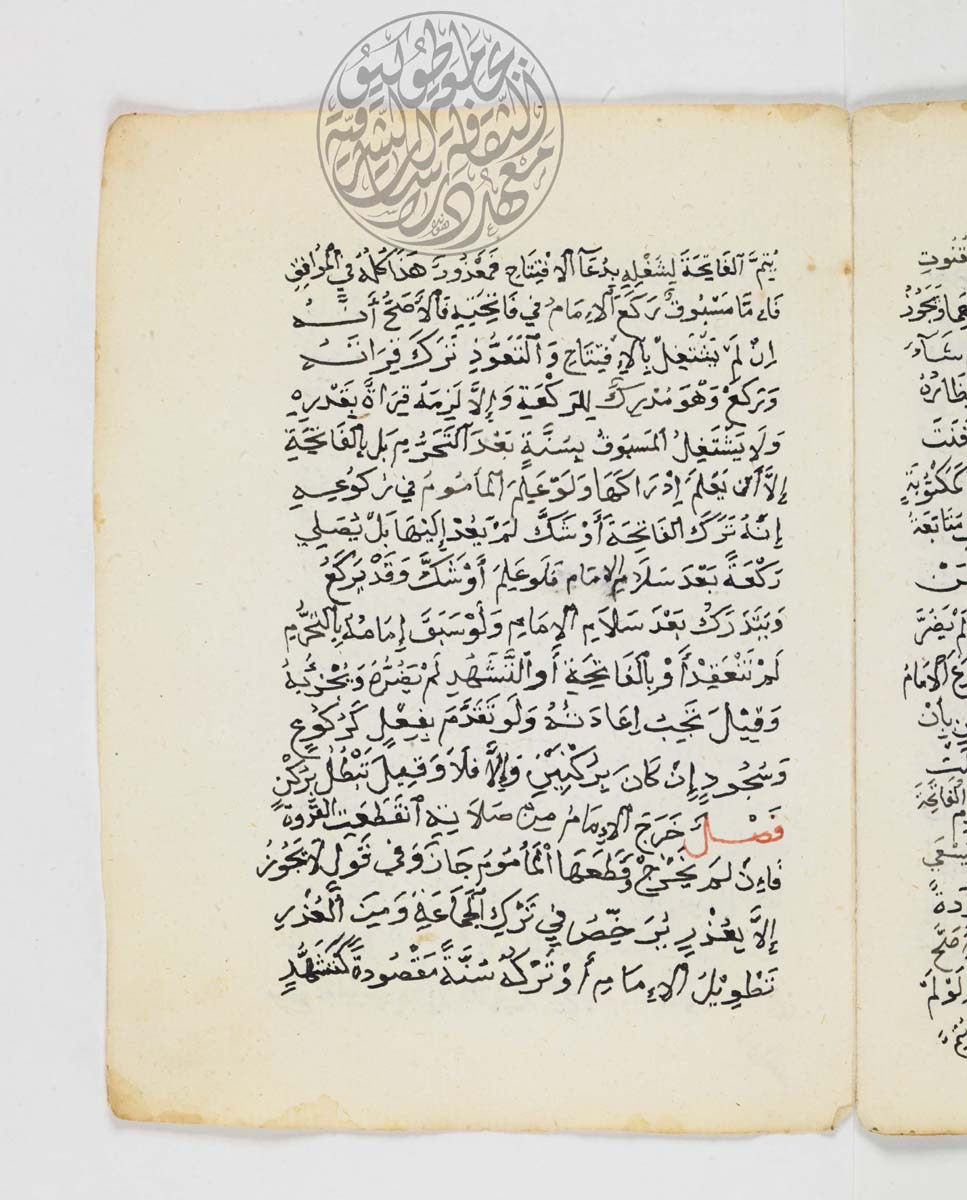 يُتِمَّ الفَاتِحَةَ لِشَغْلِهِ بِدُعَآءِ الاِفْتِتَاحِ فَمَعْذُورٌ هَذَا كُلُّهُ فِي الْمُوَافِقِ
فَاِمَّا مَسْبُوقٌ رَكَعَ الاِمَامُ فِي فَاتِحَتِهِ فَالأَصَحُّ أَنَّهُ
اِنْ لَمْ يَشْتَغِلْ بِالاِفْتِتَاحِ وَالتَّعَوُّذِ تَرَكَ قِرَاتَهُ
وَرَكَعَ وَهُوَ مُدْرِكٌ لِلرَكْعَةِ وَإِلاَّ لَزِمَهُ قِرَاةٌ بِقَدْرِهِ
وَلَا يَشْتَغِلُ المَسبُوقُ بِسُنَّةٍ بَعْدَ التَّحَرُّمِ بَل بِالفَاتِحَةِ
إِلاَّ أَنْ يَعْلَمَ اِدْرَاكَهَا وَلَوْ عَلِمَ المأمُومُ فِي رُكُوعِهِ
اِنَّهُ تَرَكَ الفَاتِحَةَ أَوْ شَكَّ لَمْ يَعُدْ إِلَيْهَا بَلْ يُصَلِي
رَكْعَةً بَعْدَ سَلَامِ الاِمَامِ فَلَو عَلِمَ أَوْ شَكَّ وَقَدْ رَكَعَ
وَيَتَدَرَكُ بَعْدَ سَلَامِ الاِمَامِ وَلَوْ سَبَقَ اِمَامَهُ بِالتَّحَرُّمِ
لَمْ تَنْعَقِدْ أَوْ بِالفَاتِحَةِ أَوِ التَّشَهُّدِ لَمْ يَضُرُّهُ وَيُجْزِئُهُ
وَقِيْلَ تَجِبُ اِعَادَتُهُ وَلَو تَقَدَّمَ بِفِعْلٍ كَرُكُوعٍ
وَسُجُودٍ إِنْ كَانَ بِرُكْنَيْنِ وَإِلاَّ فَلَا وَقِيلَ تَبْطُلُ بِرُكْنٍ
فَصْلٌ خَرَجَ الاِمَامُ مِنْ صَلَاتِهِ انْقَطَعَتِ القُدْوَةُ
فَاِنْ لَمْ يَخْرُجْ وَقَطَعَهَا المَأمُومُ جَازَ وَفِي قَوْلٍ لاَ يَجُوزُ
إِلاَّ بِعُذْرٍ يُرَخِّصُ فِي تَرْكِ الجَمَاعَةِ وَمِنَ العُذْرِ
تَطْوِيْلُ الاِمَامِ أَوْ تَرْكُهُ سُنَّةً مَقْصُودَةً كَتَشَهُّدٍ